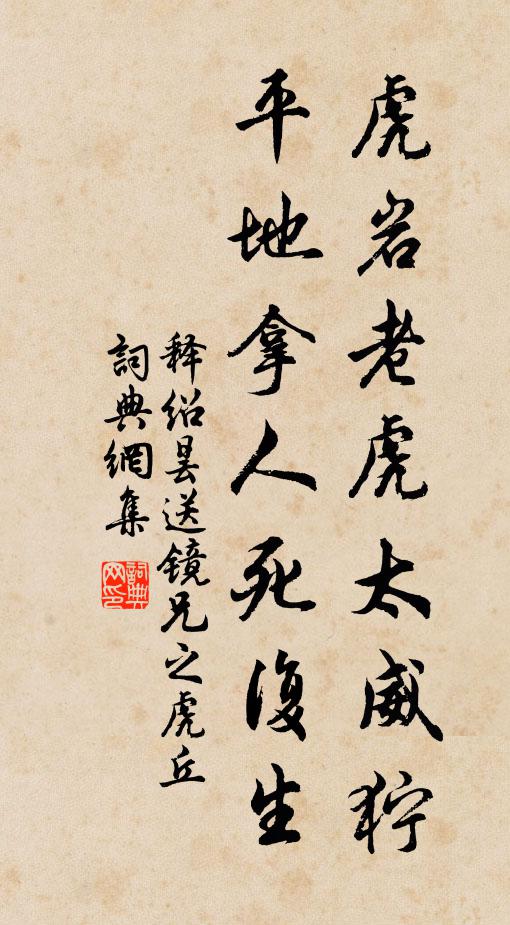 虎岩老虎太威狞
平地拿人死復生
释绍昙送镜兄之虎丘
詞典網集
詞典网印